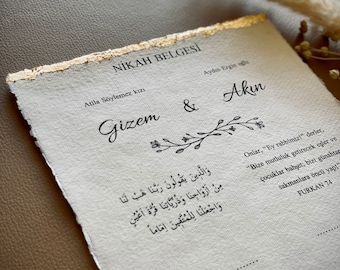 NİKAH BELGESİ
Atilla Söylemez kızı
Aydın Ergün oğlu
Gizem & Akın
Onlar, "Ey rabbimiz!" derler,
"Bize mutluluk getirecek eşler ve
çocuklar bahşet; bizi günahtan
sakınanlara öncü yap!"
FURKAN 74
وَالَّذِينَ يَقُولُونَ رَبَّنَا هَبْ لَنَا
مِنْ أَزْوَاجِنَا وَذُرِّيَّاتِنَا قُرَّةَ أَعْيُنٍ
وَاجْعَلْنَا لِلْمُتَّقِينَ إِمَامًا